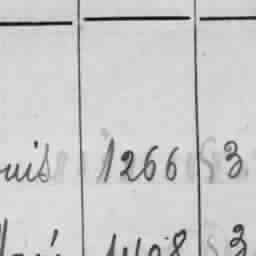 uis 1266 3
1408 3